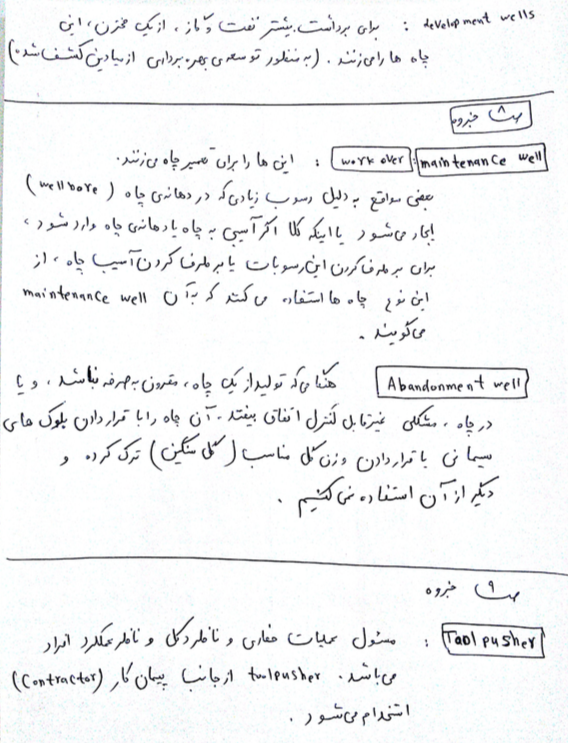 development wells : برای برداشت بیشتر نفت و گاز ، از یک مخزن ، این
چاه ها را می زنند . (به منظور توسعه ی بهره برداری از میادین کشف شده)
صـ ۸ جزوه
work over : maintenance well : این ها را برای تعمیر چاه می زنند.
بعضی مواقع به دلیل رسوب زیادی که در دهانه ی چاه (wellbore)
ایجاد می شود یا اینکه کلا اگر آسیبی به چاه یا دهانه ی چاه وارد شود ،
برای بر طرف کردن این رسوبات یا بر طرف کردن آسیب چاه ، از
این نوع چاه ها استفاده می کنند که به آن maintenance well
می گویند .
Abandonment well هنگامی که تولید از یک چاه ، مقرون به صرفه نباشد ، و یا
در چاه ، مشکلی غیرقابل کنترل اتفاق بیفتد . آن چاه را با قرار دادن بلوک های
سیمانی با قرار دادن وزن گل مناسب (گل سنگین) ترک کرده و
دیگر از آن استفاده نمی کنیم .
صـ ۹ جزوه
Toolpusher : مسئول عملیات حفاری و ناظر دکل و ناظر عملکرد افراد
می باشد . toolpusher از جانب پیمان کار (Contractor)
استخدام می شود .